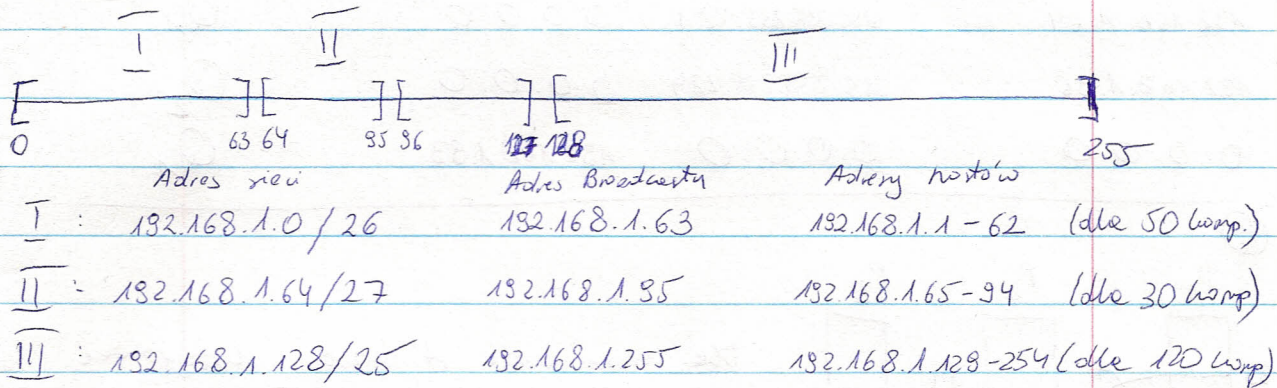 I II III
0 63 64 95 96 127 128 255
Adres sieci Adres Broadcastu Adresy hostów
I : 192.168.1.0/26 192.168.1.63 192.168.1.1-62 (dla 50 komp.)
II - 192.168.1.64/27 192.168.1.95 192.168.1.65-94 (dla 30 komp)
III : 192.168.1.128/25 192.168.1.255 192.168.1.129-254 (dla 120 komp)